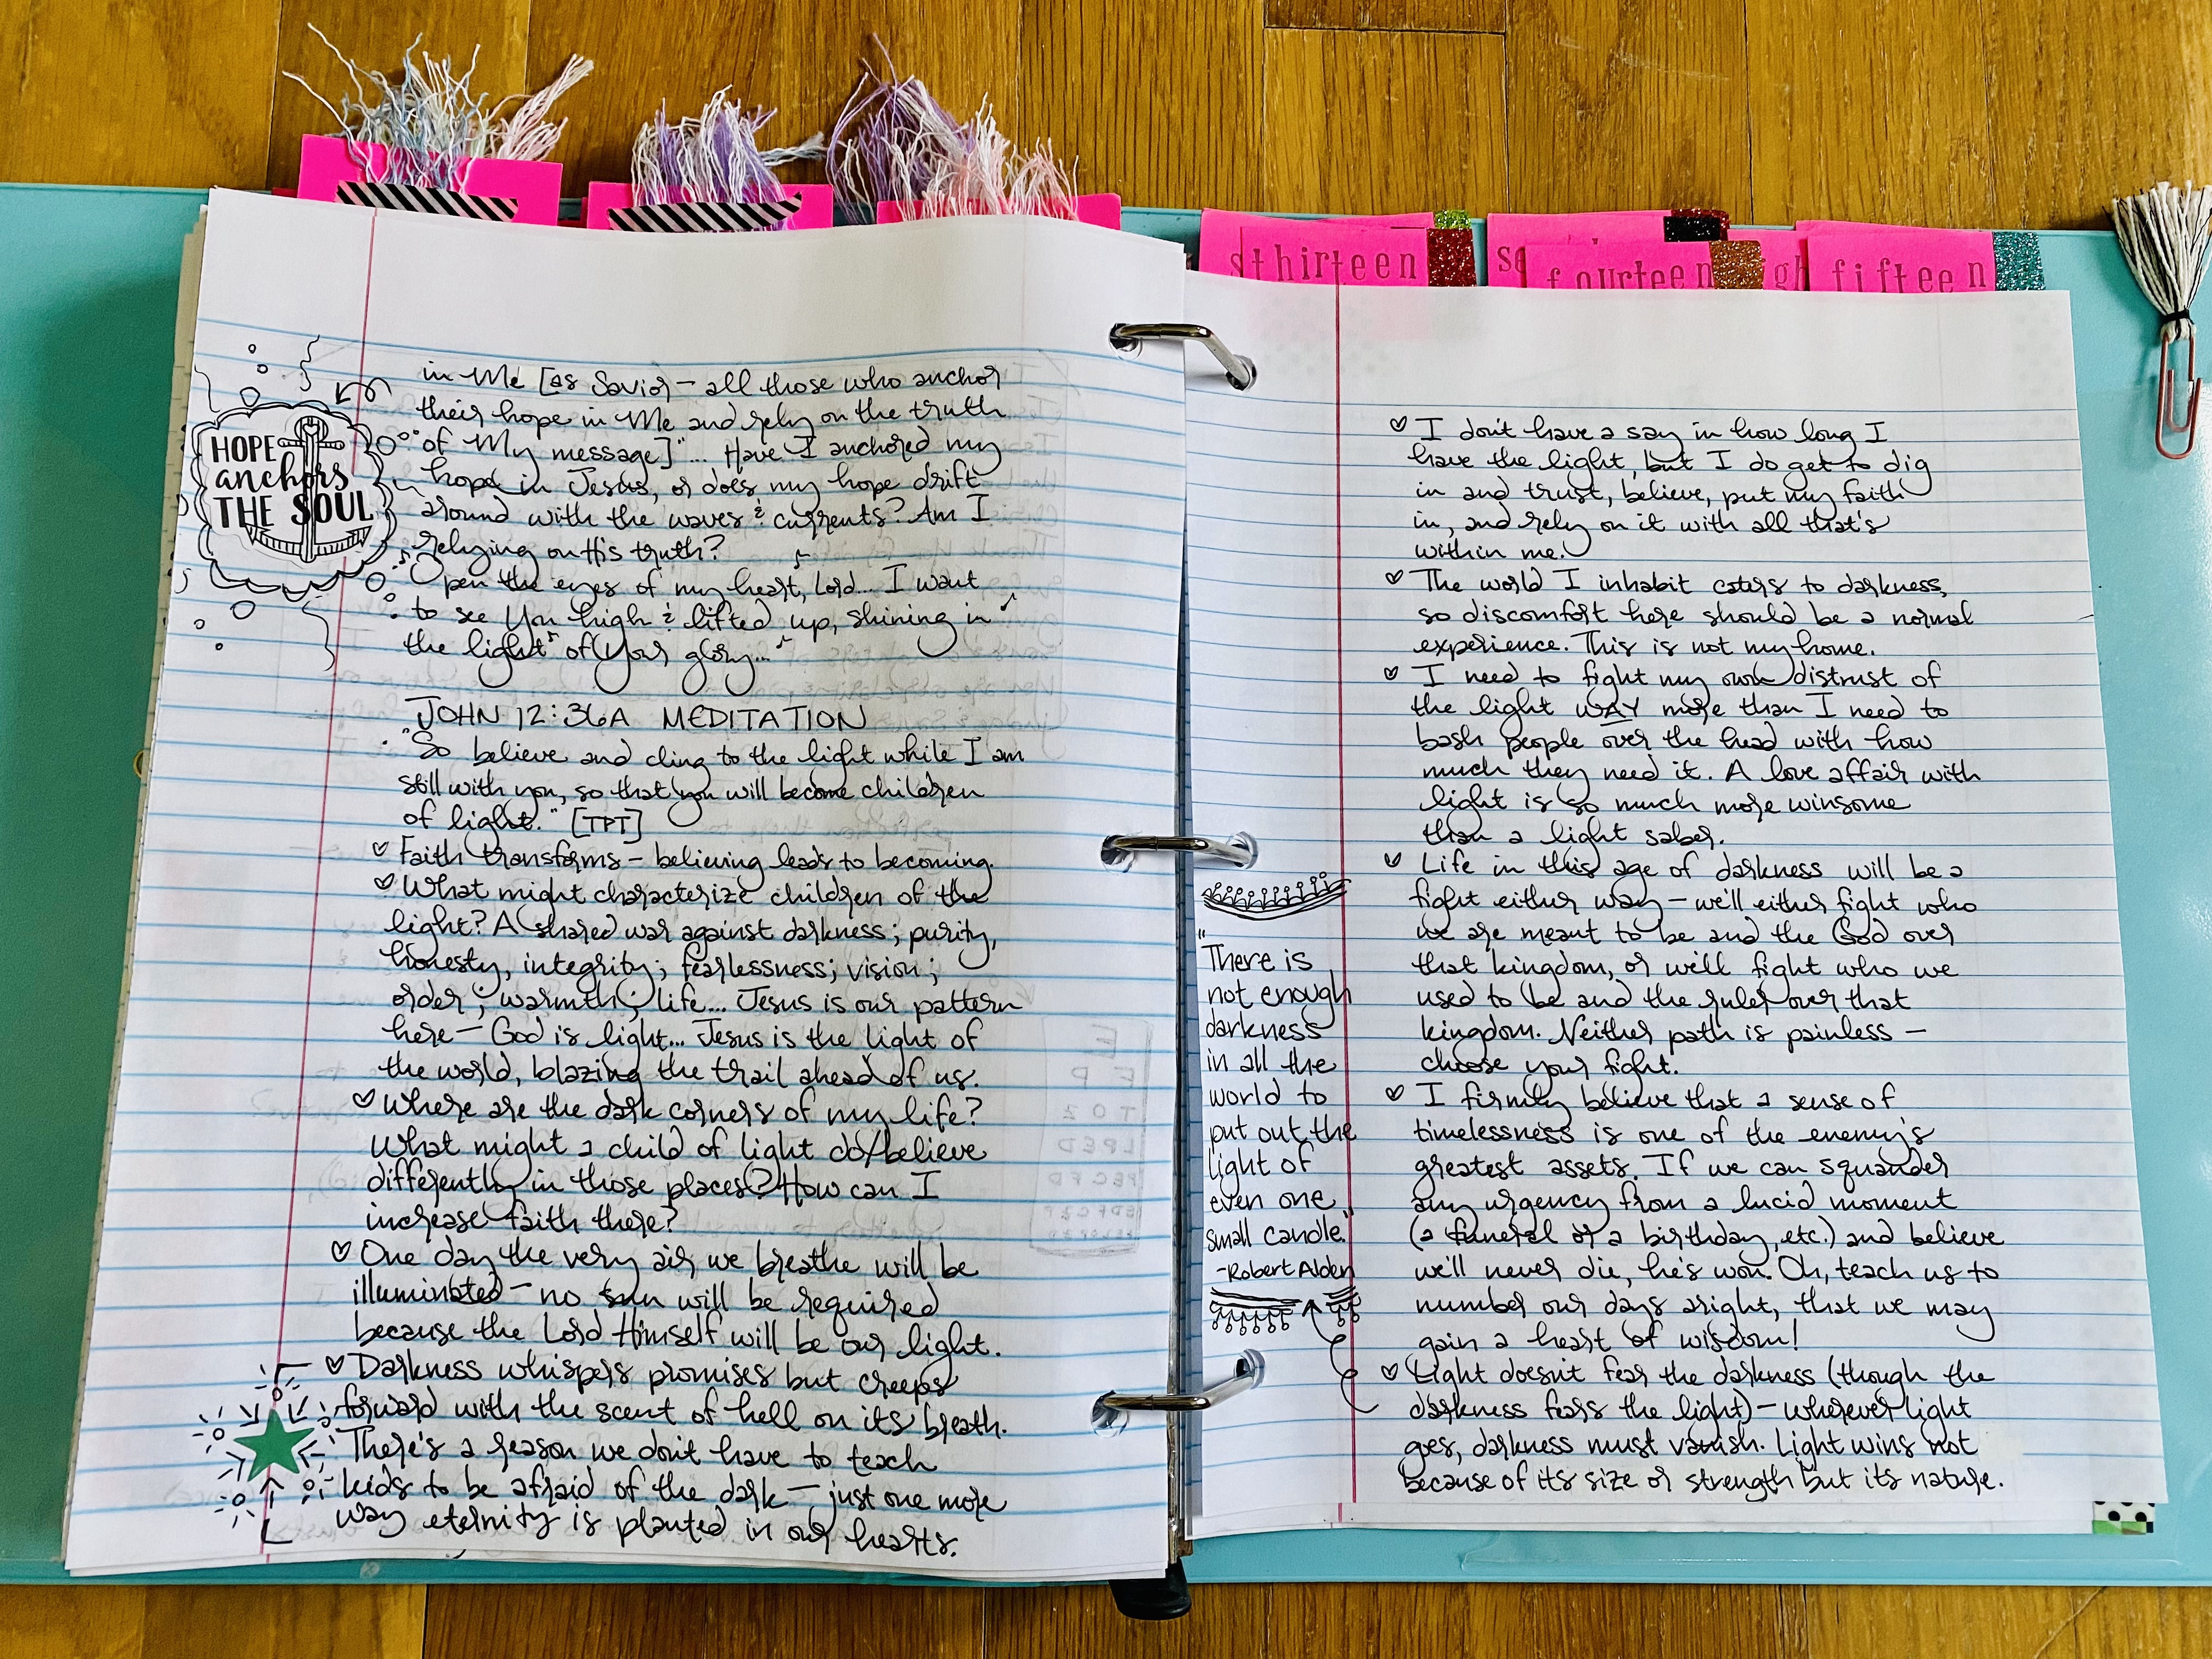 sthirteen
se
fourteen
igh
fifteen
HOPE
anchors
THE SOUL
in Me [as Savior - all those who anchor
their hope in Me and rely on the truth
of My message]"... Have I anchored my
hope in Jesus, or does my hope drift
around with the waves & currents? Am I
relying on His truth?
Open the eyes of my heart, Lord... I want
to see You high & lifted up, shining in
the light of Your glory...
JOHN 12:36A MEDITATION
"So believe and cling to the light while I am
still with you, so that you will become children
of light." [TPT]
♡ Faith transforms - believing leads to becoming.
♡ What might characterize children of the
light? A shared war against darkness; purity,
honesty, integrity; fearlessness; vision;
order; warmth; life... Jesus is our pattern
here - God is light... Jesus is the light of
the world, blazing the trail ahead of us.
♡ Where are the dark corners of my life?
What might a child of light do/believe
differently in those places? How can I
increase faith there?
♡ One day the very air we breathe will be
illuminated - no sun will be required
because the Lord Himself will be our light.
♡ Darkness whispers promises but creeps
forward with the scent of hell on its breath.
There's a reason we don't have to teach
kids to be afraid of the dark - just one more
way eternity is planted in our hearts.
"There is
not enough
darkness
in all the
world to
put out the
light of
even one
small candle."
-Robert Alden
♡ I don't have a say in how long I
have the light, but I do get to dig
in and trust, believe, put my faith
in, and rely on it with all that's
within me.
♡ The world I inhabit caters to darkness,
so discomfort here should be a normal
experience. This is not my home.
♡ I need to fight my own distrust of
the light WAY more than I need to
bash people over the head with how
much they need it. A love affair with
light is so much more winsome
than a light saber.
♡ Life in this age of darkness will be a
fight either way - we'll either fight who
we are meant to be and the God over
that kingdom, or we'll fight who we
used to be and the ruler over that
kingdom. Neither path is painless -
choose your fight.
♡ I firmly believe that a sense of
timelessness is one of the enemy's
greatest assets. If we can squander
any urgency from a lucid moment
(a funeral or a birthday, etc.) and believe
we'll never die, he's won. Oh, teach us to
number our days aright, that we may
gain a heart of wisdom!
♡ Light doesn't fear the darkness (though the
darkness fears the light) - wherever light
goes, darkness must vanish. Light wins not
because of its size or strength but its nature.